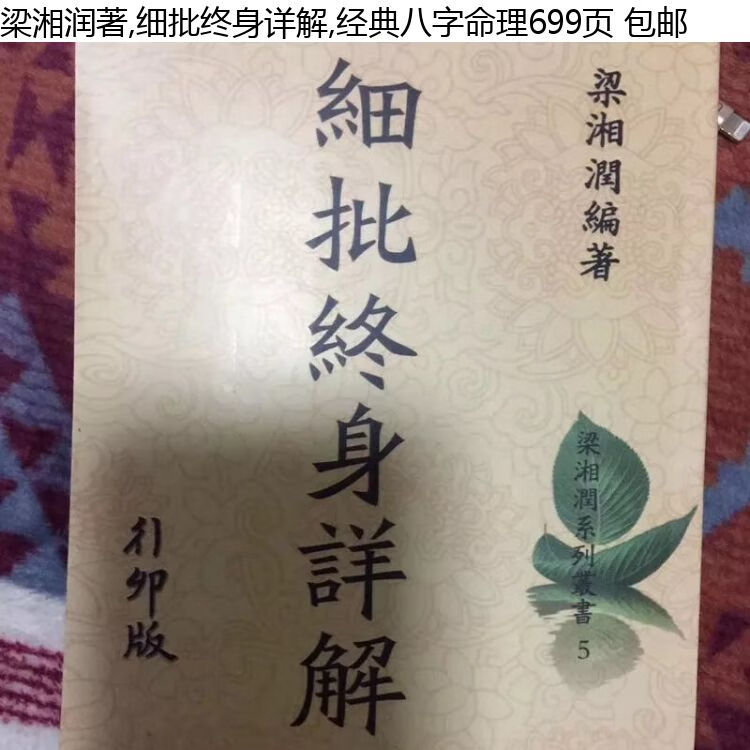 梁湘润著,细批终身详解,经典八字命理699页 包邮
梁湘潤編著
細批終身詳解
梁湘潤系列叢書 5
行卯版